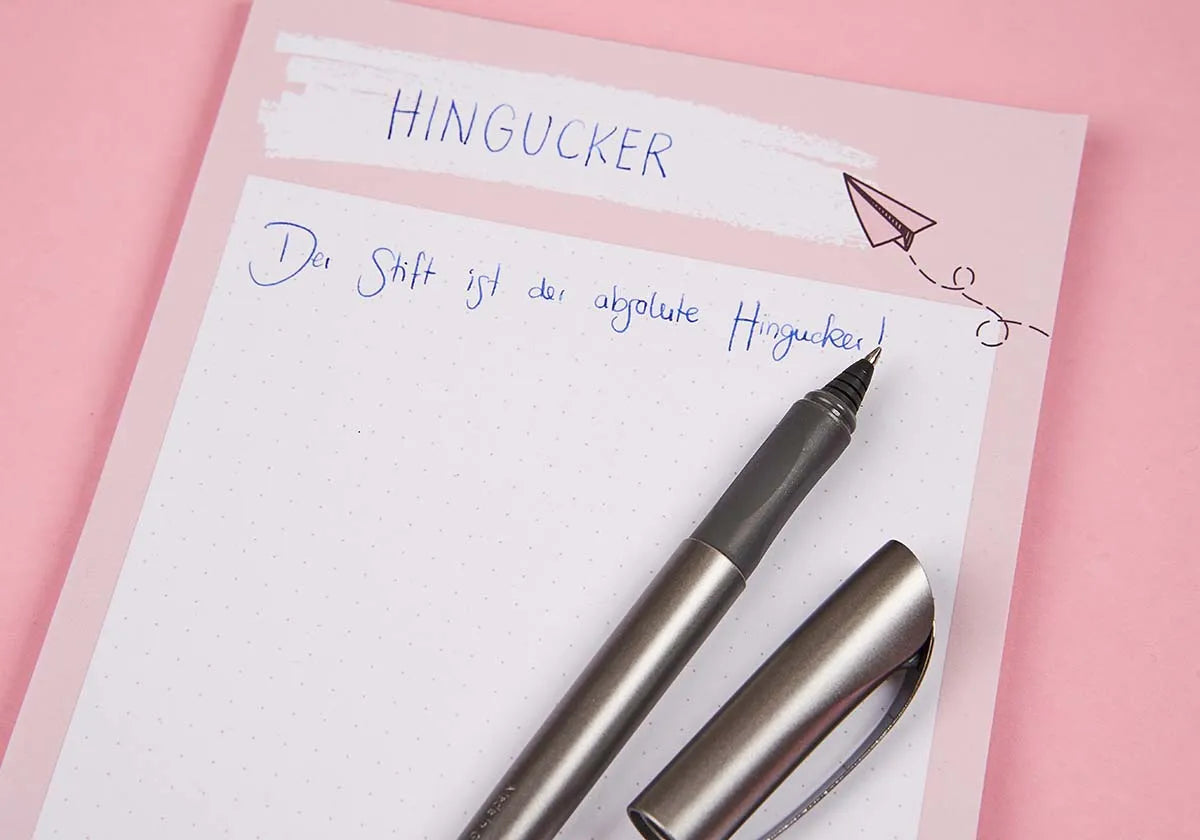 HINGUCKER
Der Stift ist der absolute Hingucker!